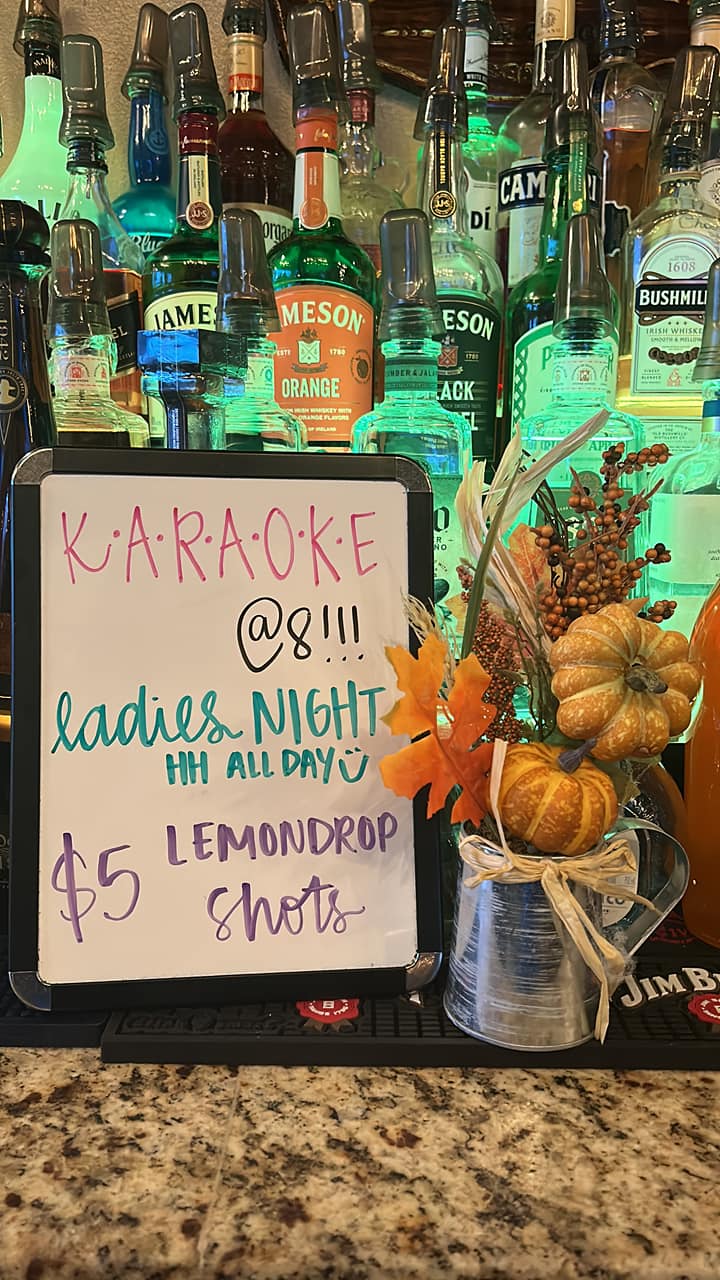 CAM
DÍ
1608
BUSHMIL
IRISH WHISKE
SMOOTH & MELLOW
JAMES
MESON
ESTD 1780
ORANGE
ESON
ACK
K·A·R·A·O·K·E
@8!!!
ladies NIGHT
HH ALL DAY
$5 LEMONDROP
shots
JIM B